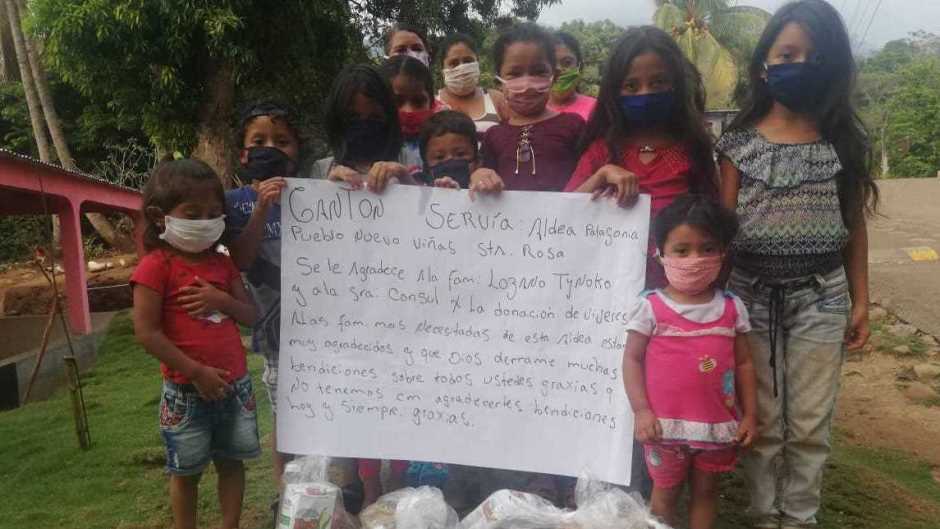 CANTON SERVÍA: Aldea Patagonia
Pueblo Nuevo Viñas Sta. Rosa
Se le Agradece Ala fam: Lozano Tynoko
y a la sra: Consul x la donación de viveres
Alas fam. mas Necesitadas de esta Aldea estan
muy agradecidos y que Dios derrame muchas
bendiciones sobre todos ustedes graxias q
No tenemos cm agradecerles bendiciones
hoy y siempre. graxias.